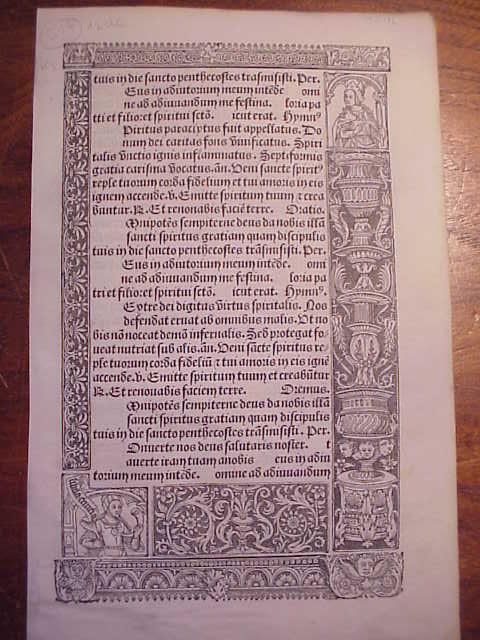 tuis in die sancto penthecostes trãsmisisti. Per.
Eus in adiutorium meum intẽde omi
ne ad adiuuandum me festina. loria pa
tri et filio: et spiritui scto. icut erat. Hymnꝰ
Piritus paraclytus fuit appellatus. Do
num dei caritas fons viuificatus. Spiri
talis vnctio ignis inflammatus. Septiformis
gratia carisma vocatus. añ. Veni sancte spiritꝰ
reple tuorum corda fidelium et tui amoris in eis
ignem accende. v. Emitte spiritum tuum et crea
buntur. R. Et renouabis faciẽ terre. Oratio.
Mnipotẽs sempiterne deus da nobis illã
sancti spiritus gratiam quam discipulis
tuis in die sancto penthecostes trãsmisisti. Per.
Eus in adiutorium meum intẽde. omi
ne ad adiuuandum me festina. loria pa
tri et filio: et spiritui scto. icut erat. Hymnꝰ.
Extre dei digitus virtus spiritalis. Nos
defendat eruat ab omnibus malis. Vt no
bis nõ noceat demõ infernalis. Sed protegat fo
ueat nutriat sub alis. añ. Veni sancte spiritus re
ple tuorum corda fideliũ et tui amoris in eis ignẽ
accende. v. Emitte spiritum tuum et creabũtur
R. Et renouabis faciem terre. Oremus.
Mnipotẽs sempiterne deus da nobis illã
sancti spiritus gratiam quam discipulis
tuis in die sancto penthecostes trãsmisisti. Per.
Onuerte nos deus salutaris noster. t
auerte iram tuam a nobis eus in adiu
torium meum intẽde. omine ad adiuuandum